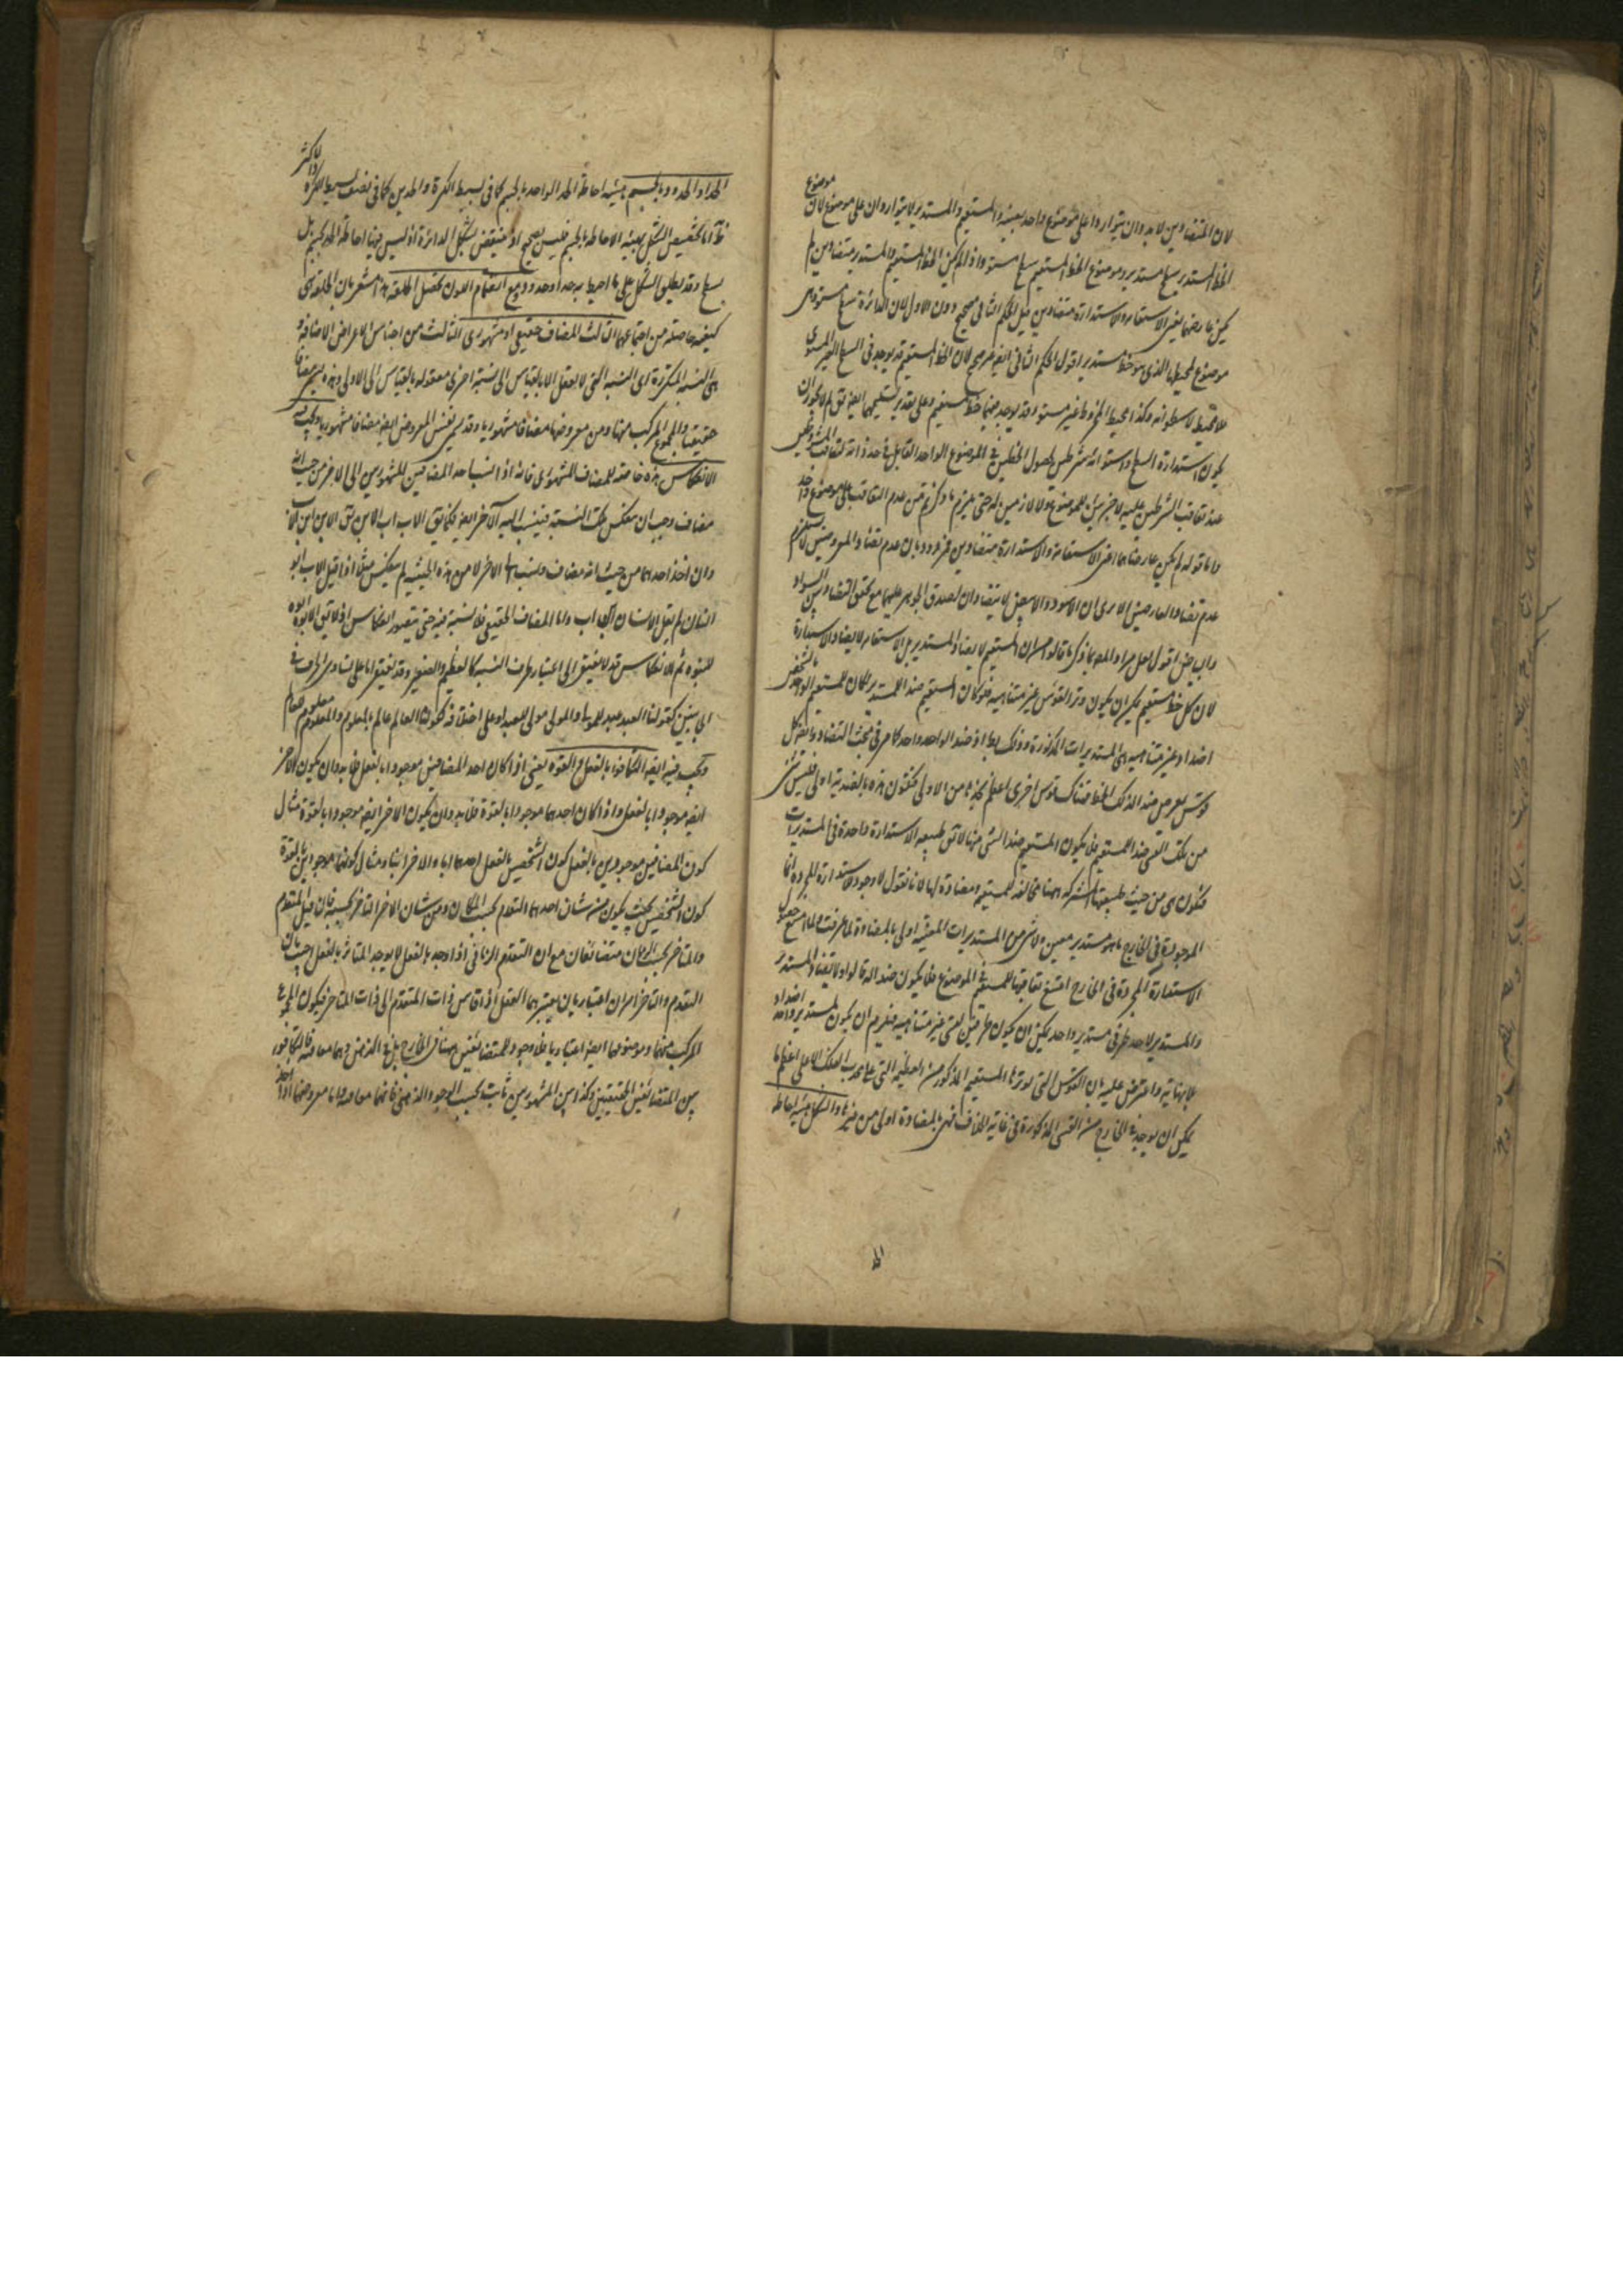 لان المتضادين لا بد وان يتواردا على موضوع واحد بعينه والمستقيم والمستدير لا يتواردان على موضوع لان موضوع
الخط المستدير سطح مستدير وموضوع الخط المستقيم سطح مستو واذا لم يكن الخط المستقيم والمستدير متضادين لم
يكن عارضهما يعنى الاستقامه والاستدارة متضادين قيل الحكم الثانى صحيح دون الاول لان الدائرة سطح مستو وهى
موضوع لمحيطها الذى هو خط مستدير اقول الحكم الثانى ايضا غير صحيح لان الخط المستقيم قد يوجد فى السطح الغير المستوى
كمحيط الاسطوانه وكذا محيط المخروط غير مستو وقد يوجد فيهما خط مستقيم وعلى تقدير تسليمهما ايضا نق لم لا يجوز ان
يكون استدارة السطح واستوائه شرطين لحصول الخطين فى الموضوع الواحد القابل فى حد ذاته لتعاقب المشروطين
عند تعاقب الشرطين عليه لا جزئين للموضوع ولا لازمين له حتى يلزم ما ذكرتم من عدم التعاقب على موضوع واحد
واما قوله لم يكن عارضاهما اعنى الاستقامة والاستدارة متضادين فمردود بان عدم تضاد المعروضين لا يستلزم
عدم تضاد العارضين الا يرى ان الاسود والابيض لا يتضادان لصدق الجوهر عليهما مع تحقق التضاد بين السواد
والبياض اقول لعل مراد المص بما ذكر ما قالوا من ان المستقيم لا يضاد المستدير بل الاستقامه لا يضاد الاستدارة
لان كل خط مستقيم يمكن ان يكون وترا لقوس غير متناهيه فلو كان المستقيم ضدا للمستدير لكان للمستقيم الواحد بالشخص
اضداد غير متناهيه هى المستديرات المذكورة وذلك بط اذ ضد الواحد واحد كما مر فى مبحث التضاد وايضا كل
قوس يفرض ضدا لذلك الخط فهناك قوس اخرى اعظم تحدبا من الاولى فتكون هذه بالضدية اولى فليس شئ
من تلك القسى ضدا للمستقيم فلا يكون المستقيم ضدا لشئ منها لا نق طبيعه الاستدارة واحدة فى المستديرات
فتكون هى من حيث طبيعتها المشتركه بينها مخالفه للمستقيم ومضادة لها لانا نقول لا وجود لاستدارة المجردة انما
الموجود فى الخارج ما هو مستدير معين ولا شئ من المستديرات المعينة اولى بالمضادة لما عرفت ولما امتنع حصول
الاستدارة المجردة فى الخارج امتنع تعاقبها للمستقيم فى الموضوع فلا يكون ضدا له قالوا ولا تضاد المستدير
والمستدير لاحد طرفى مستدير واحد يمكن ان يكون طرفين لقسى غير متناهيه فيلزم ان يكون لمستدير واحد اضداد
بلا نهاية واعترض عليه بان القوس التى لوترها المستقيم المذكور من العظيمه التى على محدب الفلك الاعلى اعظم ما
يمكن ان يوجد فى الخارج من القسى المذكورة فى غاية الخلاف فهى بالمضادة اولى من غيرها والشكل هيئه احاطه
الحد او الحدود بالجسم هيئه احاطه الحد الواحد بالجسم كما فى بسيط الكرة والحدين كما فى نصف بسيط الكرة والاكثر
ظ اما تخصيص الشكل بهيئه الاحاطه بالجسم فليس بصحيح اذ ينتقض بشكل الدائرة اذ ليس فيها احاطة الحد بجسم بل
بسطح وقد يطلق الشكل على ما احيط به حد او حدود ومع انضمام اللون تحصل الخلقة هذا مشعر بان الخلقة هى
كيفيه حاصله من اجتماعهما الثالث المضاف حقيقى او مشهورى الثالث من اجناس الاعراض الاضافة و
هى النسبه المتكررة اى النسبه التى لا يعقل الا بالقياس الى نسبة اخرى معقولة بالقياس الى الاولى وهذه يسمى مضافا
حقيقيا والمجموع المركب منها ومن معروضها مضافا مشهوريا وقد يسمى نفس المعروض ايضا مضافا مشهوريا ويجب فيه
الانعكاس هذه خاصة للمضاف المشهورى فانه اذا نسب احد المضافين المشهورين الى الاخر من حيث انه
مضاف وجب ان ينعكس تلك النسبة فينسب اليه الآخر ايضا فكما يق الاب اب الابن يق الابن ابن الاب
وان اخذ احدهما من حيث انه مضاف ونسب الى الاخر لا من هذه الحيثيه لم ينعكس مثلا اذا قيل الاب ابو
انسان لم يقل الانسان انسان اب واما المضاف الحقيقى فلا نسبة فيه حتى يتصور انعكاس اذ لا يق الابوه ابوه
للبنوه ثم الانعكاس قد لا يفتقر الى اعتبار طرف النسبه كالعظيم والصغير وقد يفتقر اما على تساوى الحرف فى
الجانبين كقولنا العبد عبد للمولى والمولى مولى للعبد او على اختلافه كقولنا العالم عالم بالمعلوم والمعلوم معلوم للعالم
ويجب فيه ايضا التكافوء بالفعل او القوه يعنى اذا كان احد المضافين موجودا بالفعل فلا بد وان يكون الآخر
ايضا موجودا بالفعل واذا كان احدهما موجودا بالقوة فلا بد وان يكون الاخر ايضا موجودا بالقوة مثال
كون المضافين موجودين بالفعل كون الشخصين بالفعل احدهما ابا والاخر ابنا ومثال كونهما موجودين بالقوة
كون الشخصين بحيث يكون من شان احدهما التقدم بحسب المكان ومن شان الاخر التاخر بحسبه فان قيل المتقدم
والمتاخر بحسب الزمان متضائفان مع ان المتقدم الزمانى اذا وجد بالفعل لا يوجد المتاخر بالفعل اجيب بان
التقدم والتاخر امران اعتباريان يعتبرهما العقل اذا قاس ذات المتقدم الى ذات المتاخر فيكون المجموع
المركب منهما ومعروضهما ايضا اعتباريا فلا وجود للمتضائفين هنا فى الخارج بل فى الذهن وهما معا فيه فالتكافوء
بين المتضائفين الحقيقيين وكذا بين المشهورين ثابت بحسب الوجود الذهنى فانهما معا فيه واما معروضهما اذا اخذ
الحد